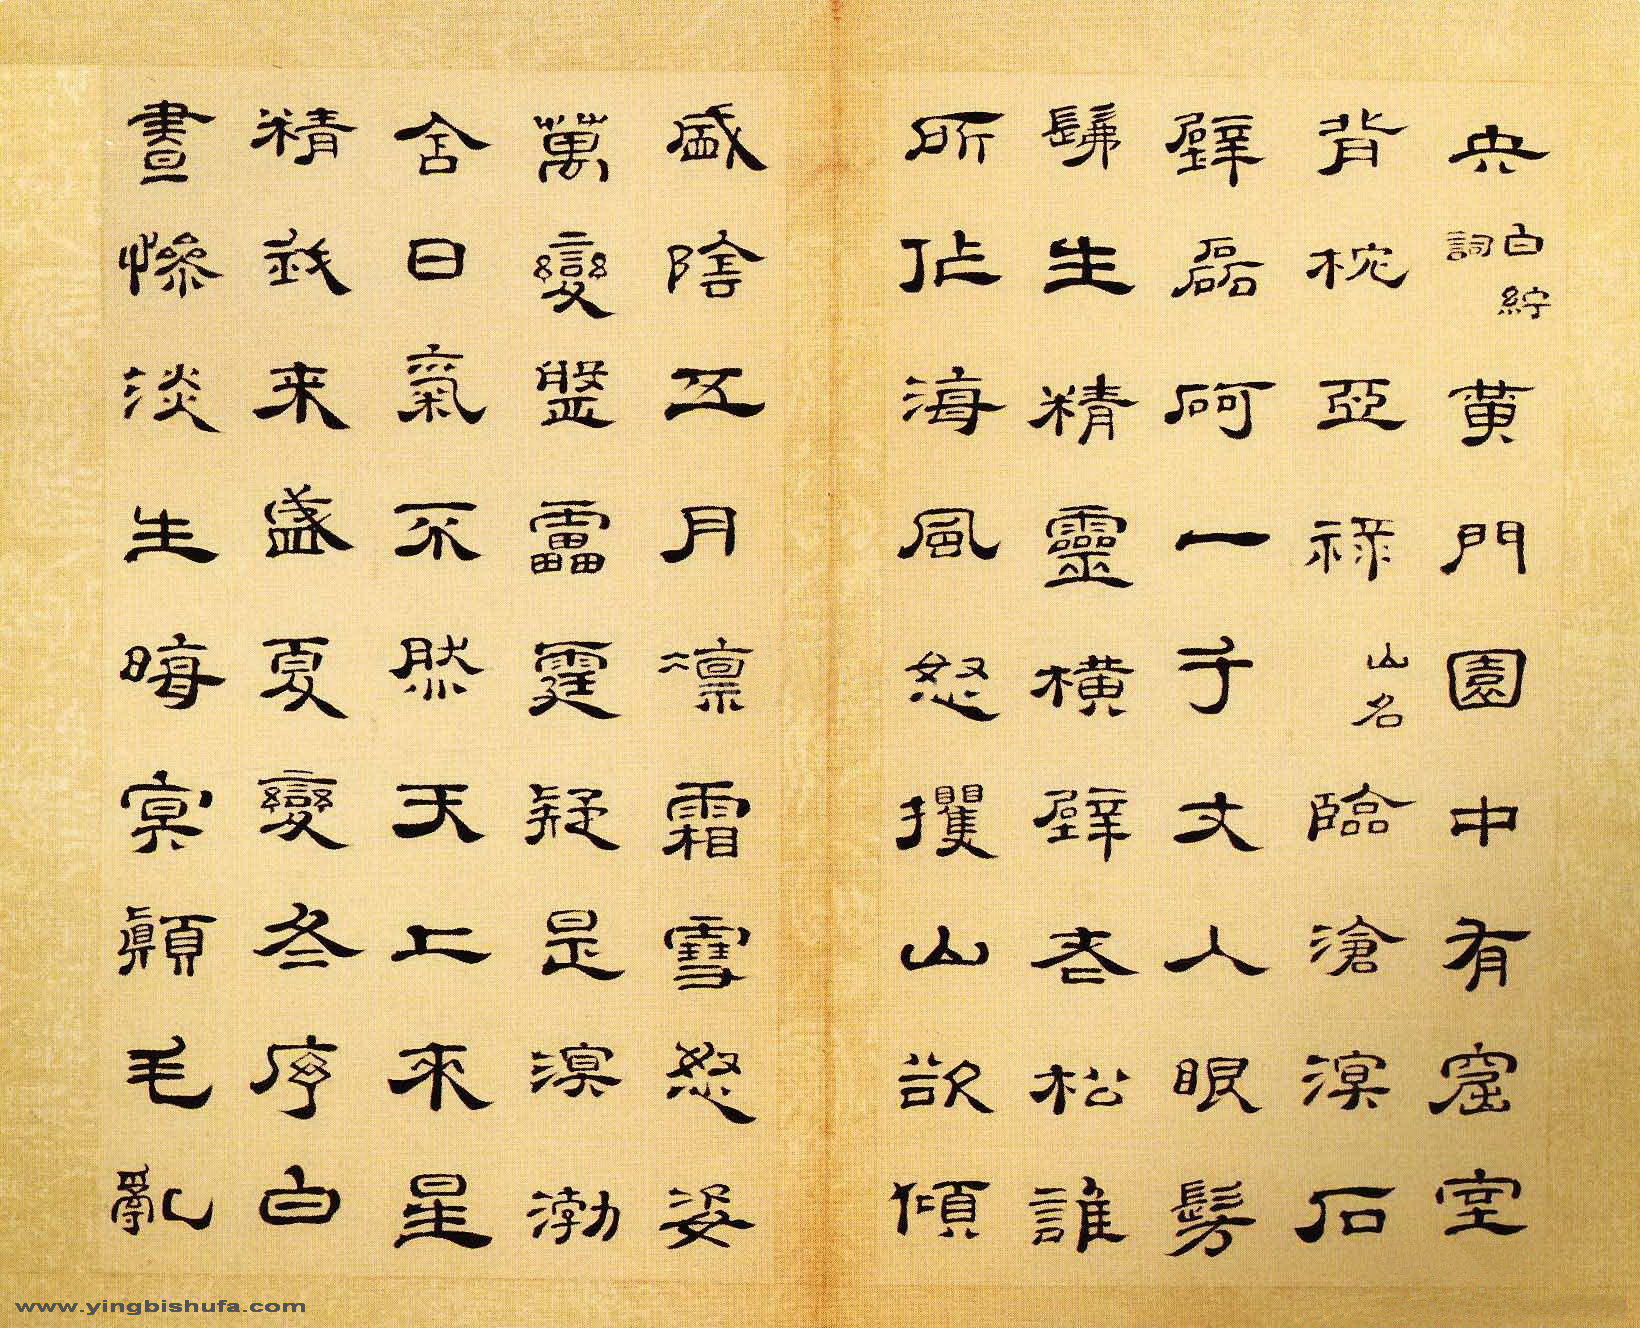 央白紵詞黃門園中有窟室
背枕亞祿山名臨滄溟石
壁磊砢一于丈人眼髣
髴生精靈橫壁老松誰
所作海風怒攫山欲傾
盛陰五月凛霜雪怒姿
萬變盤靁霆疑是溟渤
舍日氣不然天上來星
精来盛夏變冬序白
晝慘淡生晦冥顛毛亂
www.yingbishufa.com